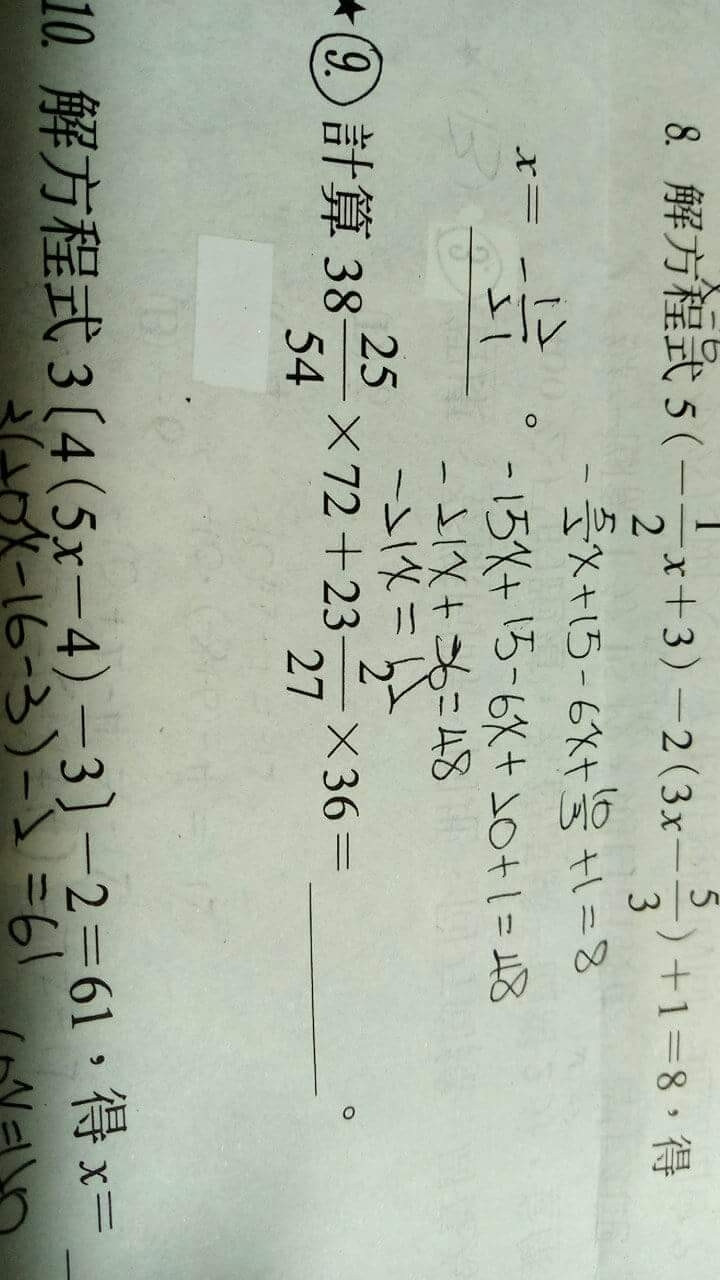 x=6
8. 解方程式 5(-1/2x+3)-2(3x-5/3)+1=8,得
-5/2x+15-6x+10/3+1=8
x= -12/21 。 -15x+15-6x+20+1=48
-21x+36=48
-21x=12
★⑨. 計算 38 25/54 ×72+23 2/27 ×36= 。
10. 解方程式 3〔4(5x-4)-3〕-2=61,得 x=
3(20x-16-3)-2=61